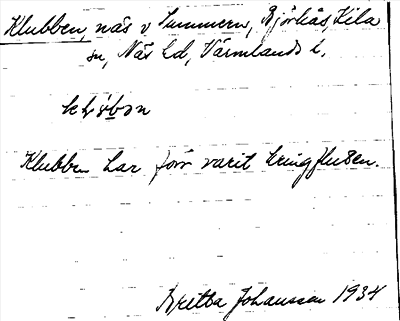 Klubben, näs v Summern, Björkås, Kila
sn, Näs hd, Värmlands l.
Klubben har förr varit kringfluten.
Britta Johansson 1934